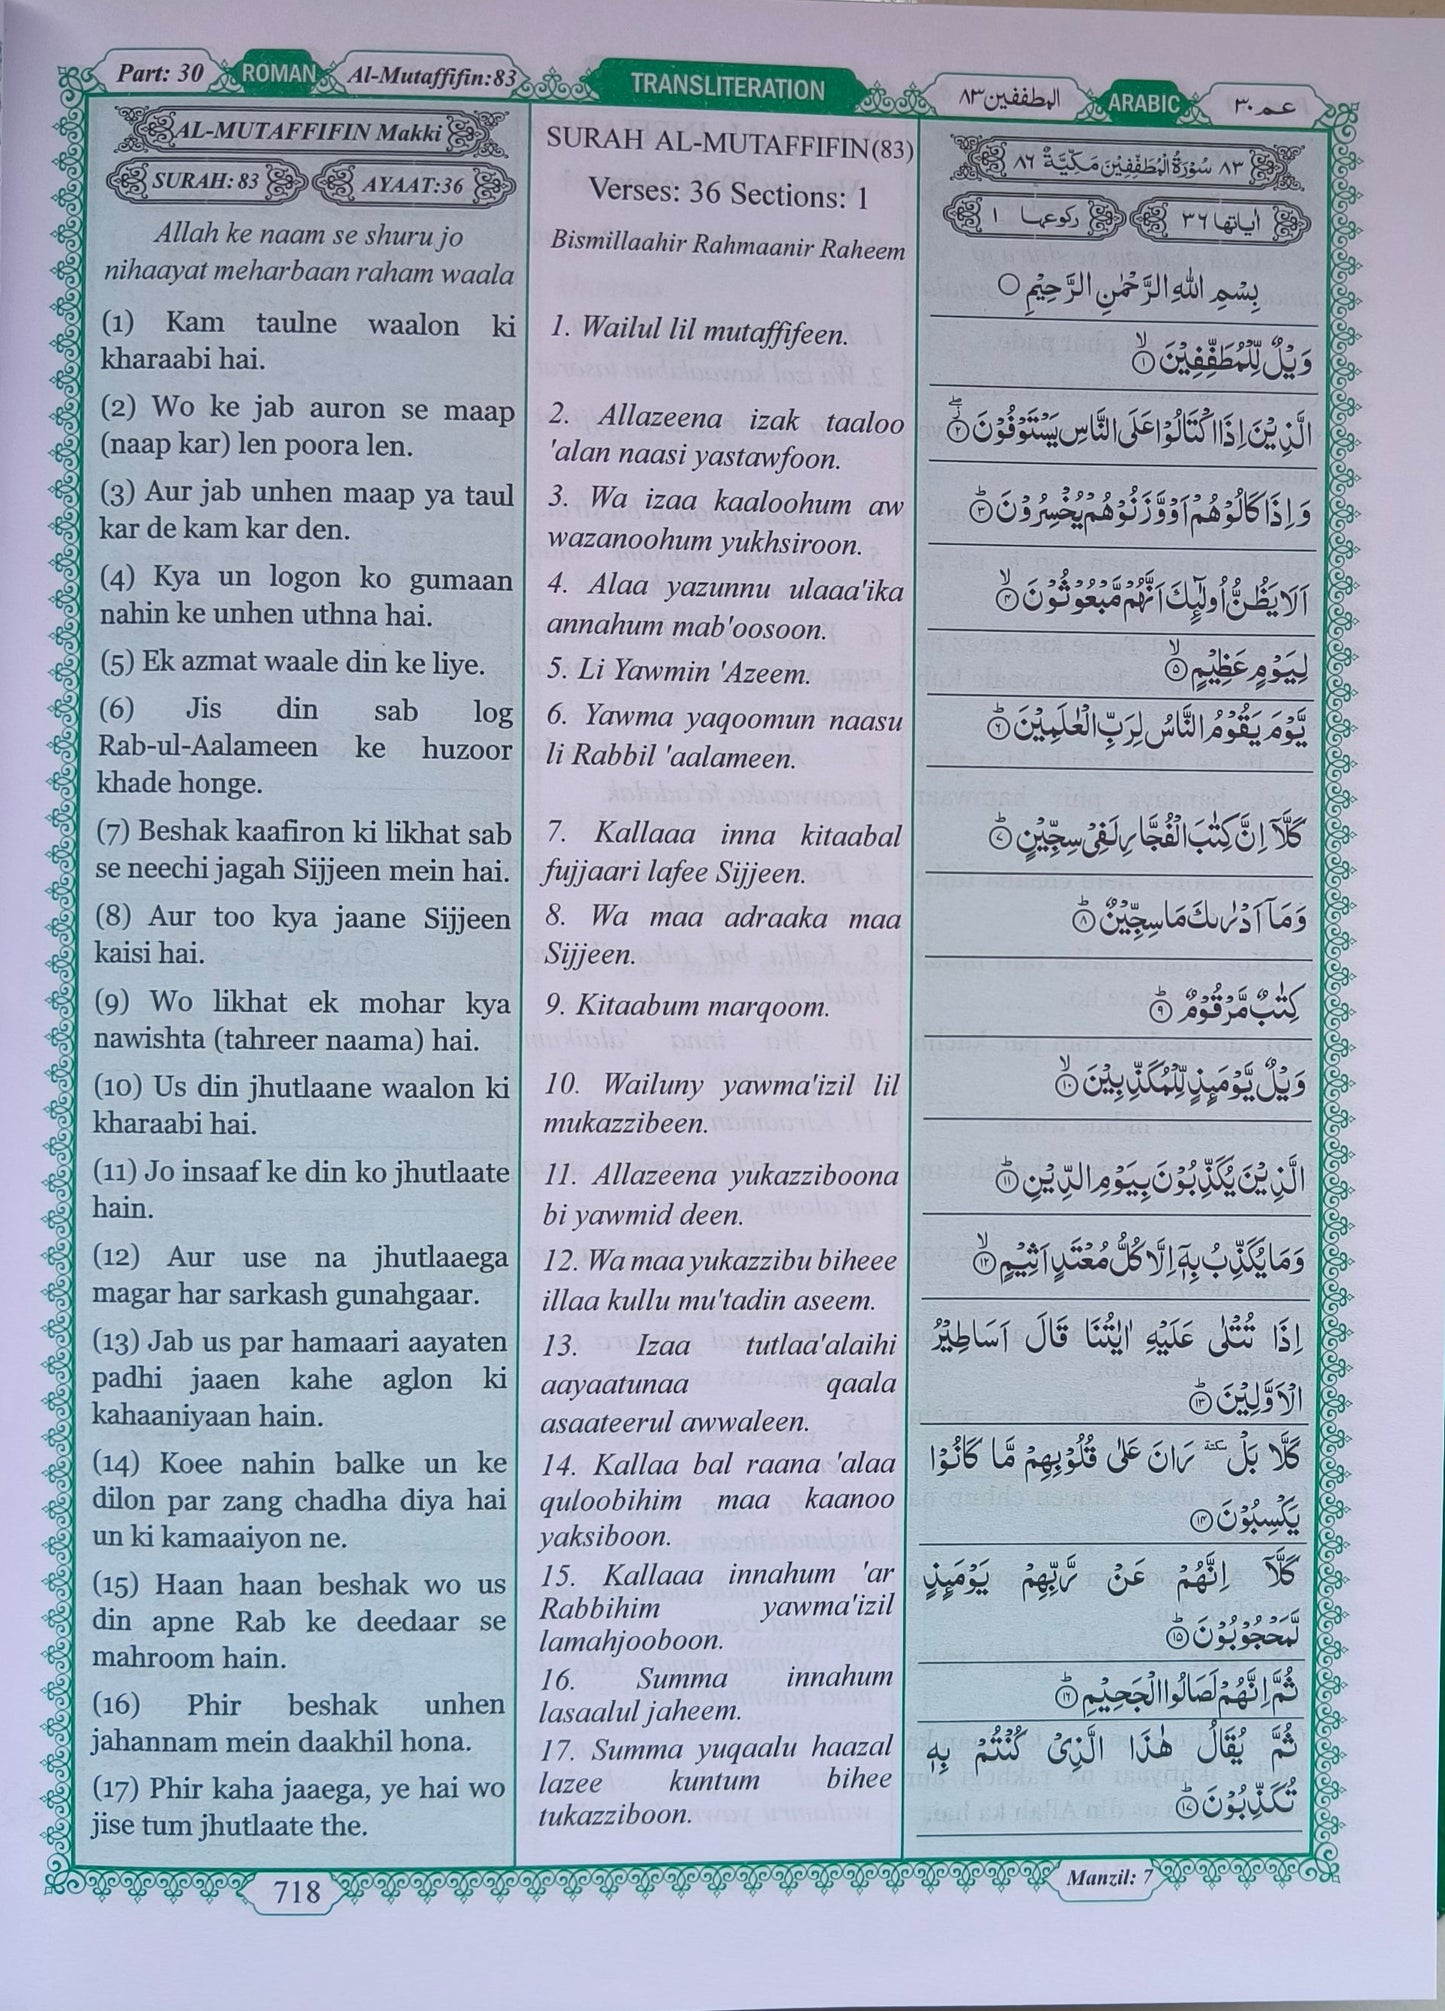 Part: 30
ROMAN
Al-Mutaffifin:83
TRANSLITERATION
المطففین ۸۳
ARABIC
عـم ۳۰
AL-MUTAFFIFIN Makki
SURAH: 83
AYAAT:36
Allah ke naam se shuru jo
nihaayat meharbaan raham waala
(1) Kam taulne waalon ki
kharaabi hai.
(2) Wo ke jab auron se maap
(naap kar) len poora len.
(3) Aur jab unhen maap ya taul
kar de kam kar den.
(4) Kya un logon ko gumaan
nahin ke unhen uthna hai.
(5) Ek azmat waale din ke liye.
(6) Jis din sab log
Rab-ul-Aalameen ke huzoor
khade honge.
(7) Beshak kaafiron ki likhat sab
se neechi jagah Sijjeen mein hai.
(8) Aur too kya jaane Sijjeen
kaisi hai.
(9) Wo likhat ek mohar kya
nawishta (tahreer naama) hai.
(10) Us din jhutlaane waalon ki
kharaabi hai.
(11) Jo insaaf ke din ko jhutlaate
hain.
(12) Aur use na jhutlaaega
magar har sarkash gunahgaar.
(13) Jab us par hamaari aayaten
padhi jaaen kahe aglon ki
kahaaniyaan hain.
(14) Koee nahin balke un ke
dilon par zang chadha diya hai
un ki kamaaiyon ne.
(15) Haan haan beshak wo us
din apne Rab ke deedaar se
mahroom hain.
(16) Phir beshak unhen
jahannam mein daakhil hona.
(17) Phir kaha jaaega, ye hai wo
jise tum jhutlaate the.
SURAH AL-MUTAFFIFIN(83)
Verses: 36 Sections: 1
Bismillaahir Rahmaanir Raheem
1. Wailul lil mutaffifeen.
2. Allazeena izak taaloo
'alan naasi yastawfoon.
3. Wa izaa kaaloohum aw
wazanoohum yukhsiroon.
4. Alaa yazunnu ulaaa'ika
annahum mab'oosoon.
5. Li Yawmin 'Azeem.
6. Yawma yaqoomun naasu
li Rabbil 'aalameen.
7. Kallaaa inna kitaabal
fujjaari lafee Sijjeen.
8. Wa maa adraaka maa
Sijjeen.
9. Kitaabum marqoom.
10. Wailuny yawma'izil lil
mukazzibeen.
11. Allazeena yukazziboona
bi yawmid deen.
12. Wa maa yukazzibu biheee
illaa kullu mu'tadin aseem.
13. Izaa tutlaa'alaihi
aayaatunaa qaala
asaateerul awwaleen.
14. Kallaa bal raana 'alaa
quloobihim maa kaanoo
yaksiboon.
15. Kallaaa innahum 'ar
Rabbihim yawma'izil
lamahjooboon.
16. Summa innahum
lasaalul jaheem.
17. Summa yuqaalu haazal
lazee kuntum bihee
tukazziboon.
۸۳ سُوْرَةُ الْمُطَفِّفِيْنَ مَكِّيَّةٌ ۸۶
اٰیاتها ۳۶
رکوعها ۱
بِسْمِ اللّٰهِ الرَّحْمٰنِ الرَّحِيْمِ ○
وَيْلٌ لِّلْمُطَفِّفِيْنَ ۙ۱
الَّذِيْنَ اِذَا اكْتَالُوْا عَلَى النَّاسِ يَسْتَوْفُوْنَ ۖ۲
وَ اِذَا كَالُوْهُمْ اَوْ وَّزَنُوْهُمْ يُخْسِرُوْنَ ؕ۳
اَلَا يَظُنُّ اُولٰٓئِكَ اَنَّهُمْ مَّبْعُوْثُوْنَ ۙ۴
لِيَوْمٍ عَظِيْمٍ ۙ۵
يَّوْمَ يَقُوْمُ النَّاسُ لِرَبِّ الْعٰلَمِيْنَ ؕ۶
كَلَّاۤ اِنَّ كِتٰبَ الْفُجَّارِ لَفِيْ سِجِّيْنٍ ؕ۷
وَمَاۤ اَدْرٰىكَ مَا سِجِّيْنٌ ؕ۸
كِتٰبٌ مَّرْقُوْمٌ ؕ۹
وَيْلٌ يَّوْمَئِذٍ لِّلْمُكَذِّبِيْنَ ۙ۱۰
الَّذِيْنَ يُكَذِّبُوْنَ بِيَوْمِ الدِّيْنِ ؕ۱۱
وَمَا يُكَذِّبُ بِهٖۤ اِلَّا كُلُّ مُعْتَدٍ اَثِيْمٍ ۙ۱۲
اِذَا تُتْلٰى عَلَيْهِ اٰيٰتُنَا قَالَ اَسَاطِيْرُ
الْاَوَّلِيْنَ ؕ۱۳
كَلَّا بَلْ ٚ رَانَ عَلٰى قُلُوْبِهِمْ مَّا كَانُوْا
يَكْسِبُوْنَ ۱۴
كَلَّاۤ اِنَّهُمْ عَنْ رَّبِّهِمْ يَوْمَئِذٍ
لَّمَحْجُوْبُوْنَ ؕ۱۵
ثُمَّ اِنَّهُمْ لَصَالُوا الْجَحِيْمِ ؕ۱۶
ثُمَّ يُقَالُ هٰذَا الَّذِيْ كُنْتُمْ بِهٖ
تُكَذِّبُوْنَ ؕ۱۷
718
Manzil: 7